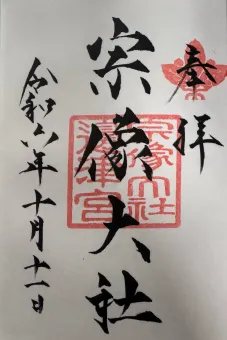 奉拝
宗像大社
令和六年十月十一日
宗像大社
邊津宮